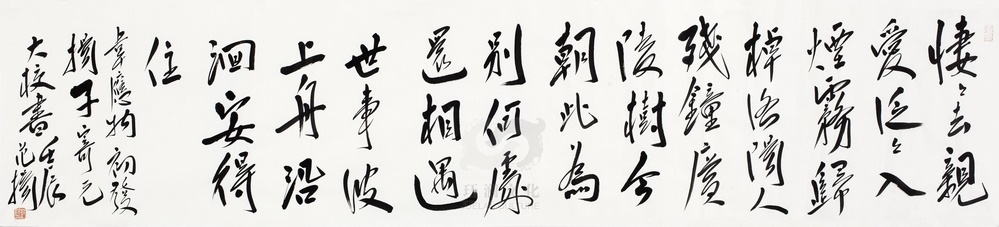 悽〻去親
愛泛〻入
煙霧歸
棹洛陽人
殘鐘廣
陵樹今
朝此為
別何處
還相遇
世事波
上舟沿
洄安得
住
韋應物初發
揚子寄元
大校書壬辰
范揚